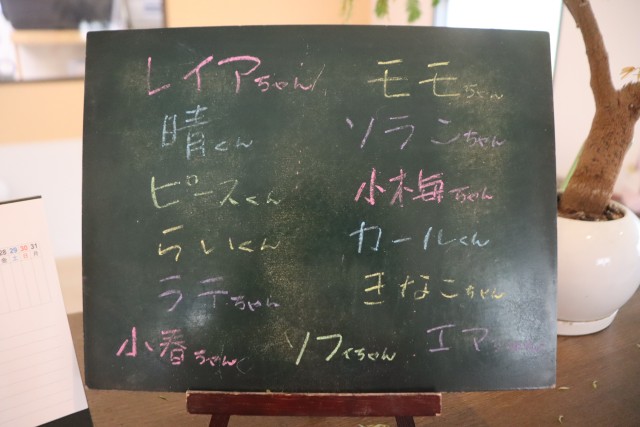 レイアちゃん モモちゃん
晴くん ソランちゃん
ピースくん 小梅ちゃん
らいくん カールくん
ラテちゃん きなこちゃん
小春ちゃん ソフィちゃん エマちゃん
28 29 30 31